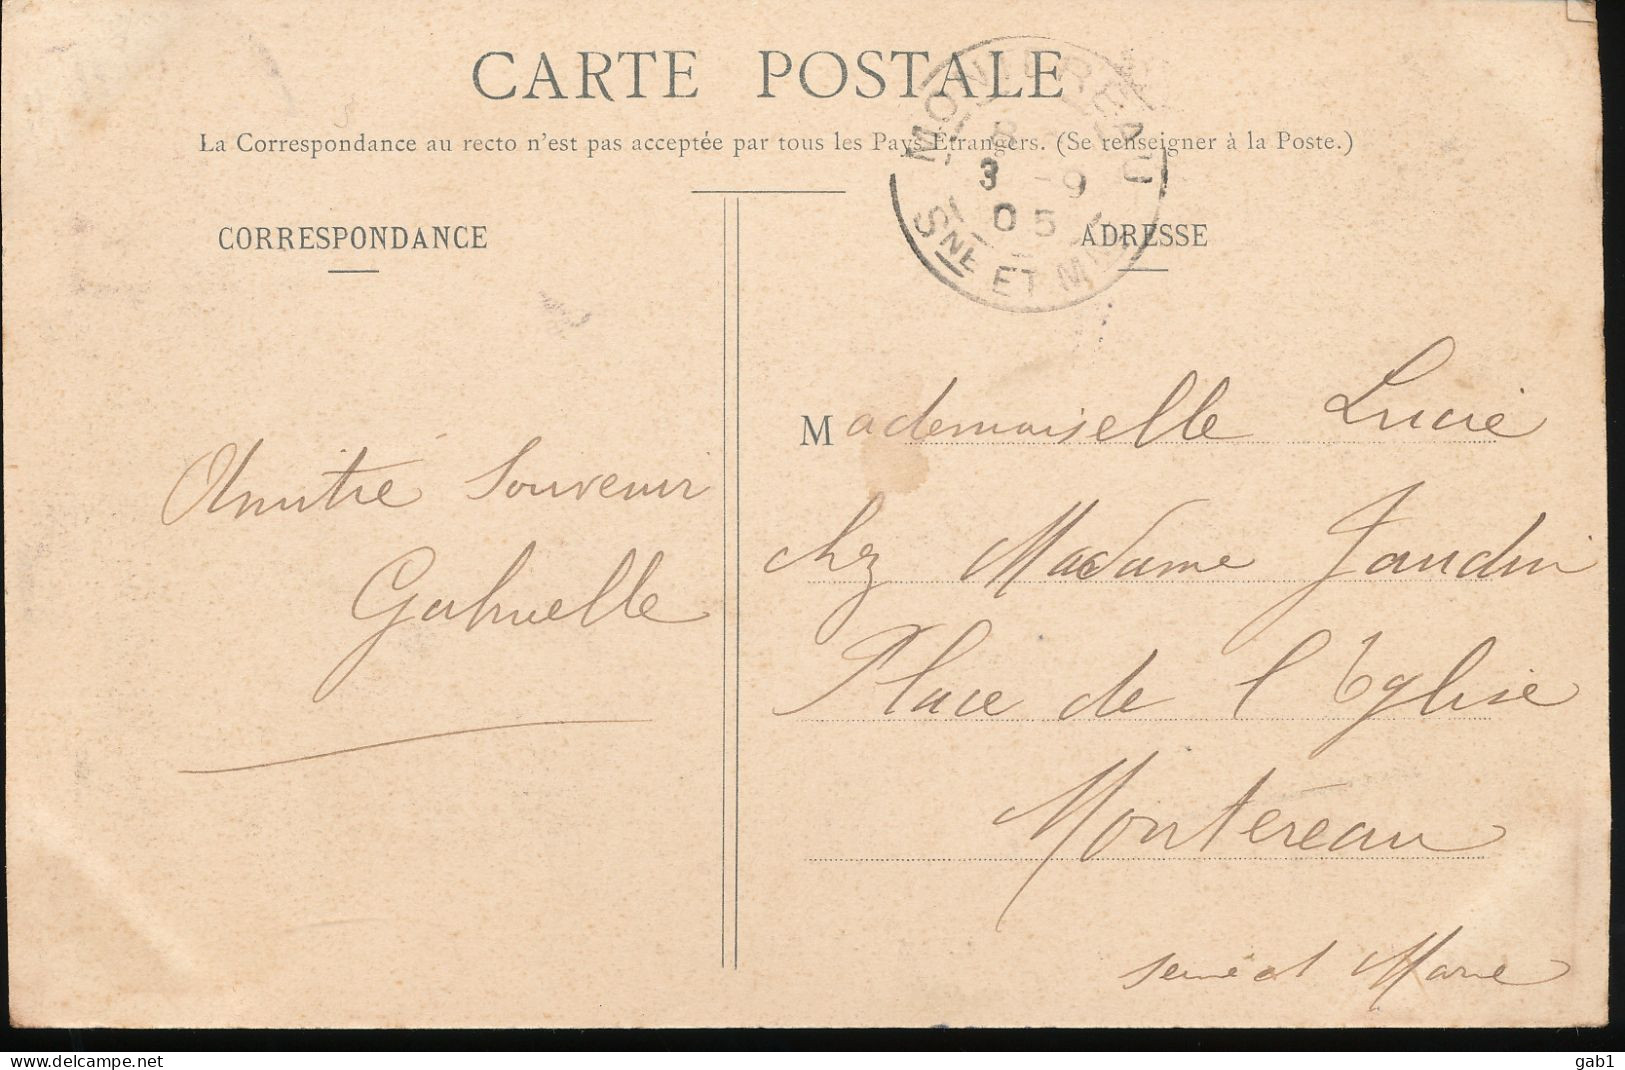 CARTE POSTALE
La Correspondance au recto n'est pas acceptée par tous les Pays Étrangers. (Se renseigner à la Poste.)
MONTEREAU
8
3 -9
05
SNE ET MNE
CORRESPONDANCE
ADRESSE
Amitié Souvenir
Gabrielle
Mademoiselle Lucie
chez Madame Jaudin
Place de l'Eglise
Montereau
Seine et Marne
delcampe.net
gab1